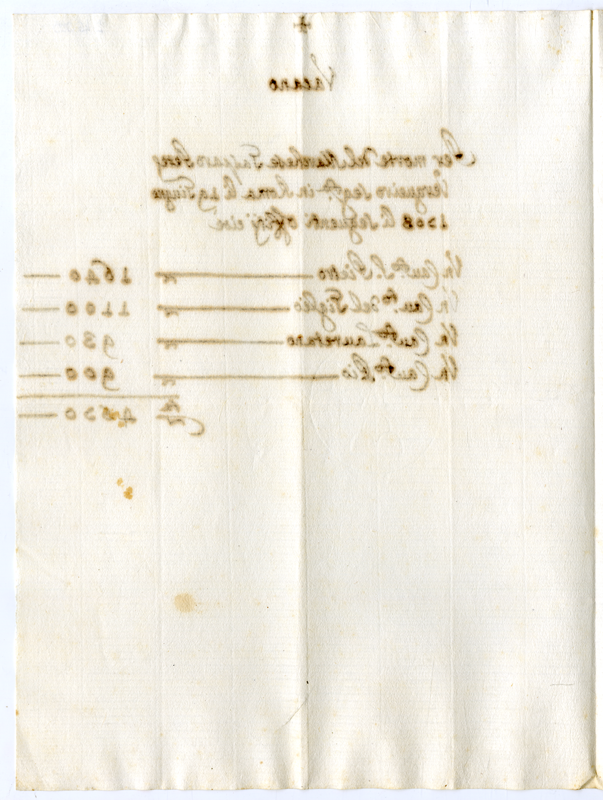 +
Vacano
Per morte del Marchese Gasparo
seg.ta in Roma li 29 Giugno
1708 li seguenti offitij cioè
Un Cau.to S. Pietro — 1640 —
Un Cau.to del Giglio — 1100 —
Un Cau.to Lauretano — 930 —
Un Cau.to Pio — 900 —